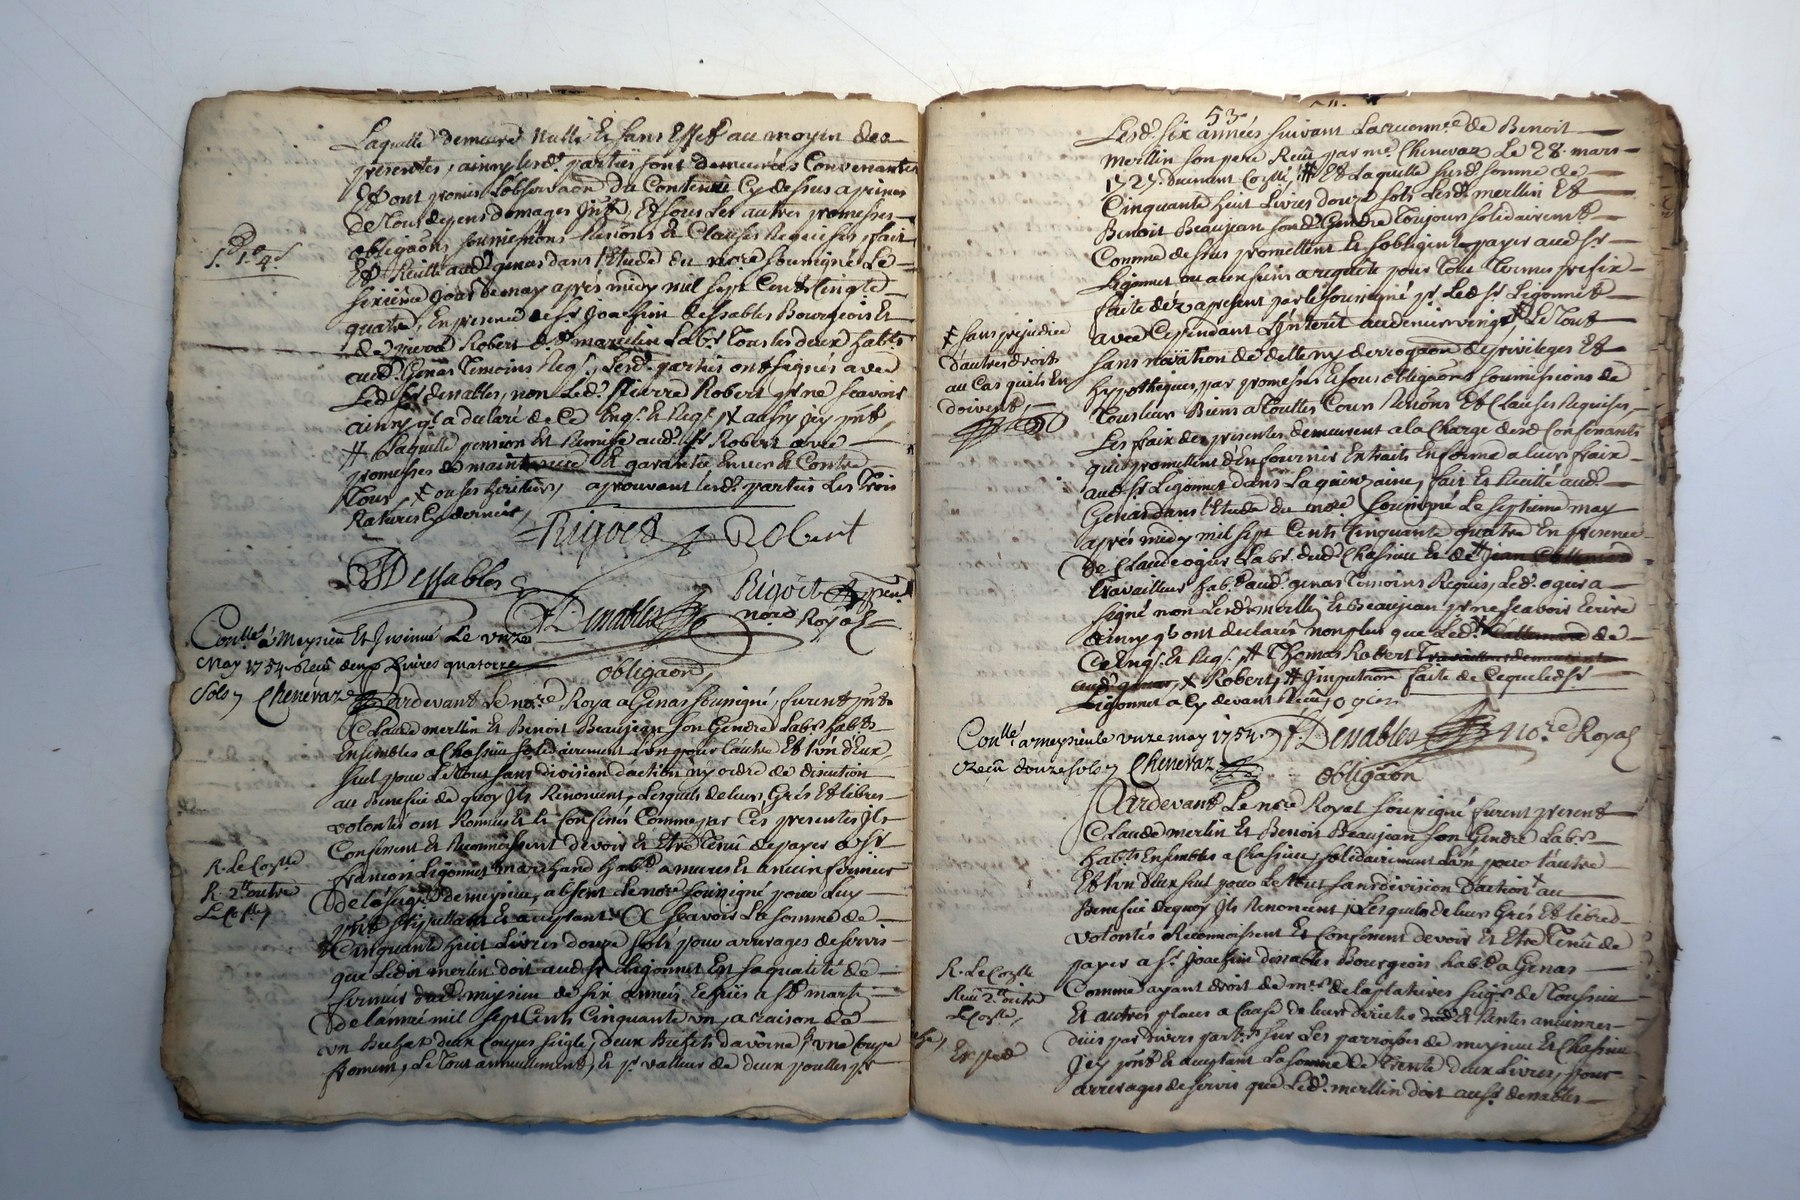 Laquelle demeure Nulle Et sans Effet au moyen des
presentes, ainsy lesd. parties sont demeurées Convenantes
Et ont promis Lobservaon du Contenu Cy dessus a peines
de Tous depens domages Et sous les autres promesses
obligaons soumissions Renons Et Clauses Requises, fait
Et Recitté aud. genas dans l'Etude du nore soussigné Le
sixieme Jour de may apres midy mil sept Cent Cinqte
quatre, En presence de sr Joachim dessables Bourgeois Et
de pierre Robert dt marcelin Labr Tous les deux habts
aud. Genas Temoins Req. Lesd. parties ont signés avec
Led. sr dessables, non Led. pierre Robert pr ne scavoir
ainsy q.l a declaré de Ce Enqs. Et Reqs.
Laquelle pension Et Remise aud. sr Robert avec
promesses de maintenue Et garantie Envers Et Contre
Tous, ou ses heritiers, aprouvant lesd. parties Les Trois
Ratures Cy derniere,
Rigoed Robert
Dessables
Rigod
Dessables nore Royal
Conllé a Meysieu Et Insinué Le unze
May 1754 Reçu deux Livres quatorze
sols Chenevaz
obligaon,
Pardevant Le nore Royal a Genas soussigné, furent pnts
Claude merlin Et Benoit Beaujean son Gendre Labrs habts
Ensembles a Chassieu solidairement l'un pour l'autre Et l'un d'Eux
seul pour Le Tout sans division d'action ny ordre de discution
au Benefice de quoy Ils Renoncent, Lesquels de leurs Grés Et libres
volontés ont Reconnus Et Confessés Comme par Ces presentes Ils
Confessent Et Reconnoissent devoir Et Etre Tenû de payer a sr
françois Ligonnet marchand habt a mures Et ancien fermier
de meysieu, absent Le nore soussigné pour Luy
pnt stipullant Et acceptant A scavoir La somme de
Cinquante huit Livres douze sols pour arrerages de servis
que Ledit merlin doit aud. sr Ligonnet En sa qualité de
fermier dud. meysieu de six années Echües a st martin
de l'année mil sept Cents Cinquante un, a raison de
un Bichet deux Coupes seigle, deux Bichets d'avoine, une Coupe
froment, Le Tout annuellement, Et pr valleur de deux poulles pr
R. Le Conlle
R. 2tt outre
Le Conlle
53
Lesd. six années suivant La reconnce de Benoit
merllin son pere Reçu par me Chenevaz Le 28 mars
1727. dument Conllé Et Laquelle susd. somme de
Cinquante huit Livres douze sols Lesd. merllin Et
Benoit Beaujean sond. Gendre Toujours solidairement
Comme dessus promettent Et s'obligent payer aud. sr
Ligonnet ou aux siens a requête pour Tout Termes prefix
faite dez a present par le soussigné pr Led. sr Ligonnet
avec Cependant L'Interêt au denier vingt, Le Tout
sans novation de delte ny derrogaon de privileges Et
hypotheques, par promesses Et sous obligaons soumissions de
Tous leurs Biens a Touttes Cours Renons Et Clauses Requises,
Les frais des presentes demeurent a la Charge desd. Confessants
qui promettent d'En fournir Extraits En forme a leurs frais
aud. sr Ligonnet dans La quinzaine, fait Et Recitté aud.
Genas dans l'Etude du nore soussigné Le septieme may
apres midy mil sept Cents Cinquante quatre En presence
de Claude ogier Labr dud. Chassieu Et de
Travailleur habt aud. genas Temoins Requis, Led. ogier a
signé non Lesd. merllin Et Beaujean pr ne scavoir Ecrire
ainsy q.ls ont declarés non plus que Led. de
Ce Enqs. Et Reqs. Thomas Robert
Robert, Imputaon faite de Ce que led. sr
Ligonnet a Cy devant Reçu, ogier
Dessables nore Royal
Conllé a meysieu le unze may 1754.
Reçu douze sols Chenevaz
sans prejudice
d'autres droits
au Cas qu'il s'En
doivent,
obligaon
Pardevant Le nore Royal soussigné furent presents
Claude merlin Et Benoit Beaujean son Gendre Labrs
habts Ensembles a Chassieu, solidairement l'un pour l'autre
Et l'un d'Eux seul pour Le Tout sans division d'action au
Benefice de quoy Ils Renoncent, Lesquels de leurs Grés Et libres
volontés Reconnoissent Et Confessent devoir Et Etre Tenû de
payer a sr Joachim dessables Bourgeois habt a Genas
Comme ayant droit de
Et autres places a Cause de leurs directes Et Rentes anciennes
düs par divers parts sur Les parroisses de meysieu Et Chassieu
Icy pnt Et acceptant La somme de Trente deux Livres, pour
arrerages de servis que Led. merllin doit aud. sr dessables
R. Le Conlle
Reçu 2tt outre
Le Conlle,
Exped